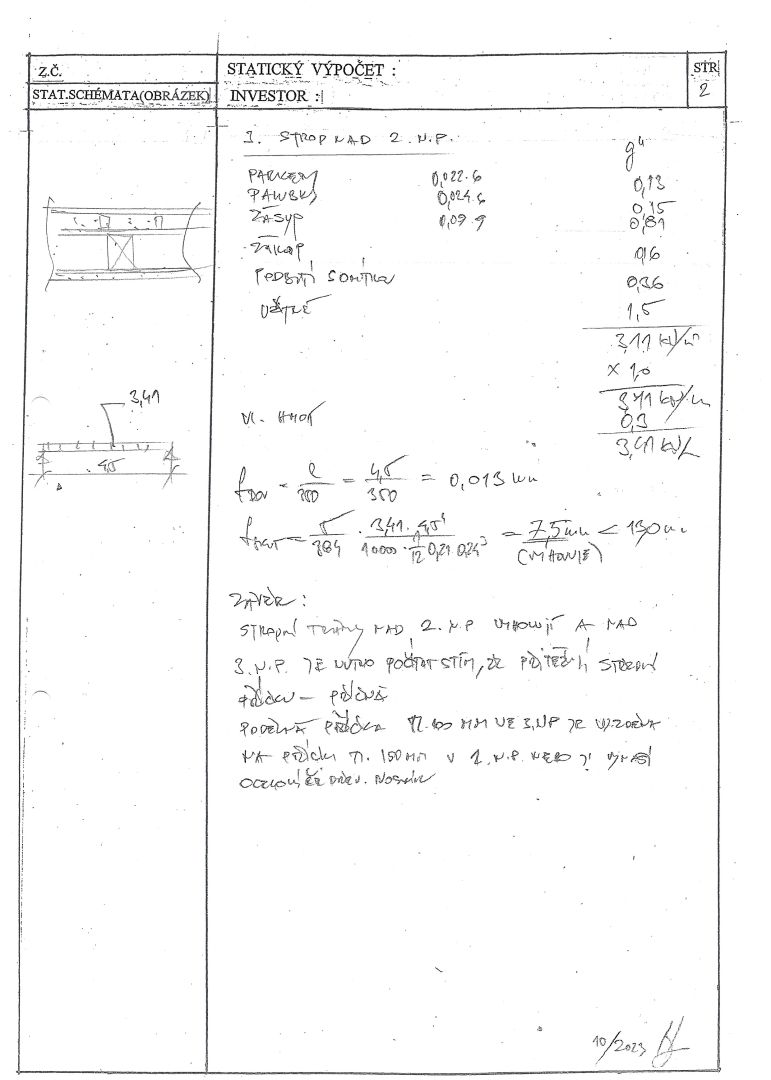 Z.Č.
STATICKÝ VÝPOČET :
STR
STAT.SCHÉMATA(OBRÁZEK)
INVESTOR :
2
1. STROP NAD 2. N.P.
gⁿ
PARKETY 0,022.6 0,13
0,024.6 0,15
ZÁSYP 0,09.9 0,81
ZÁKLOP 0,16
PODBITÍ S OMÍTKOU 0,36
UŽITNÉ 1,5
3,11 kN/m²
x 1,0
3,11 kN/m
VL. HMOT 0,3
3,41 kN/
3,41
4,5
f DOV = l/350 = 4,5/350 = 0,013 m
f SKUT = 5/384 . 3,41. 4,5⁴/10000 . 1/12 0,21 0,24³ = 7,5mm < 130 m
(VYHOVUJE)
ZÁVĚR :
STROPNÍ TRÁMY NAD 2. N.P VYHOVUJÍ A NAD
3. N.P. JE NUTNO POČÍTAT S TÍM, ŽE PŘITĚŽÍ STROPNÍ
PŘÍČKU – PŘÍČNÁ
PODÉLNÁ PŘÍČKA TL.100 MM VE 3.NP JE
NA PŘÍČKU TL. 150MM V 2. N.P. NEBO JI VYNÁŠÍ
OCELOVÝ ČI DŘEV. NOSNÍK
10/2023